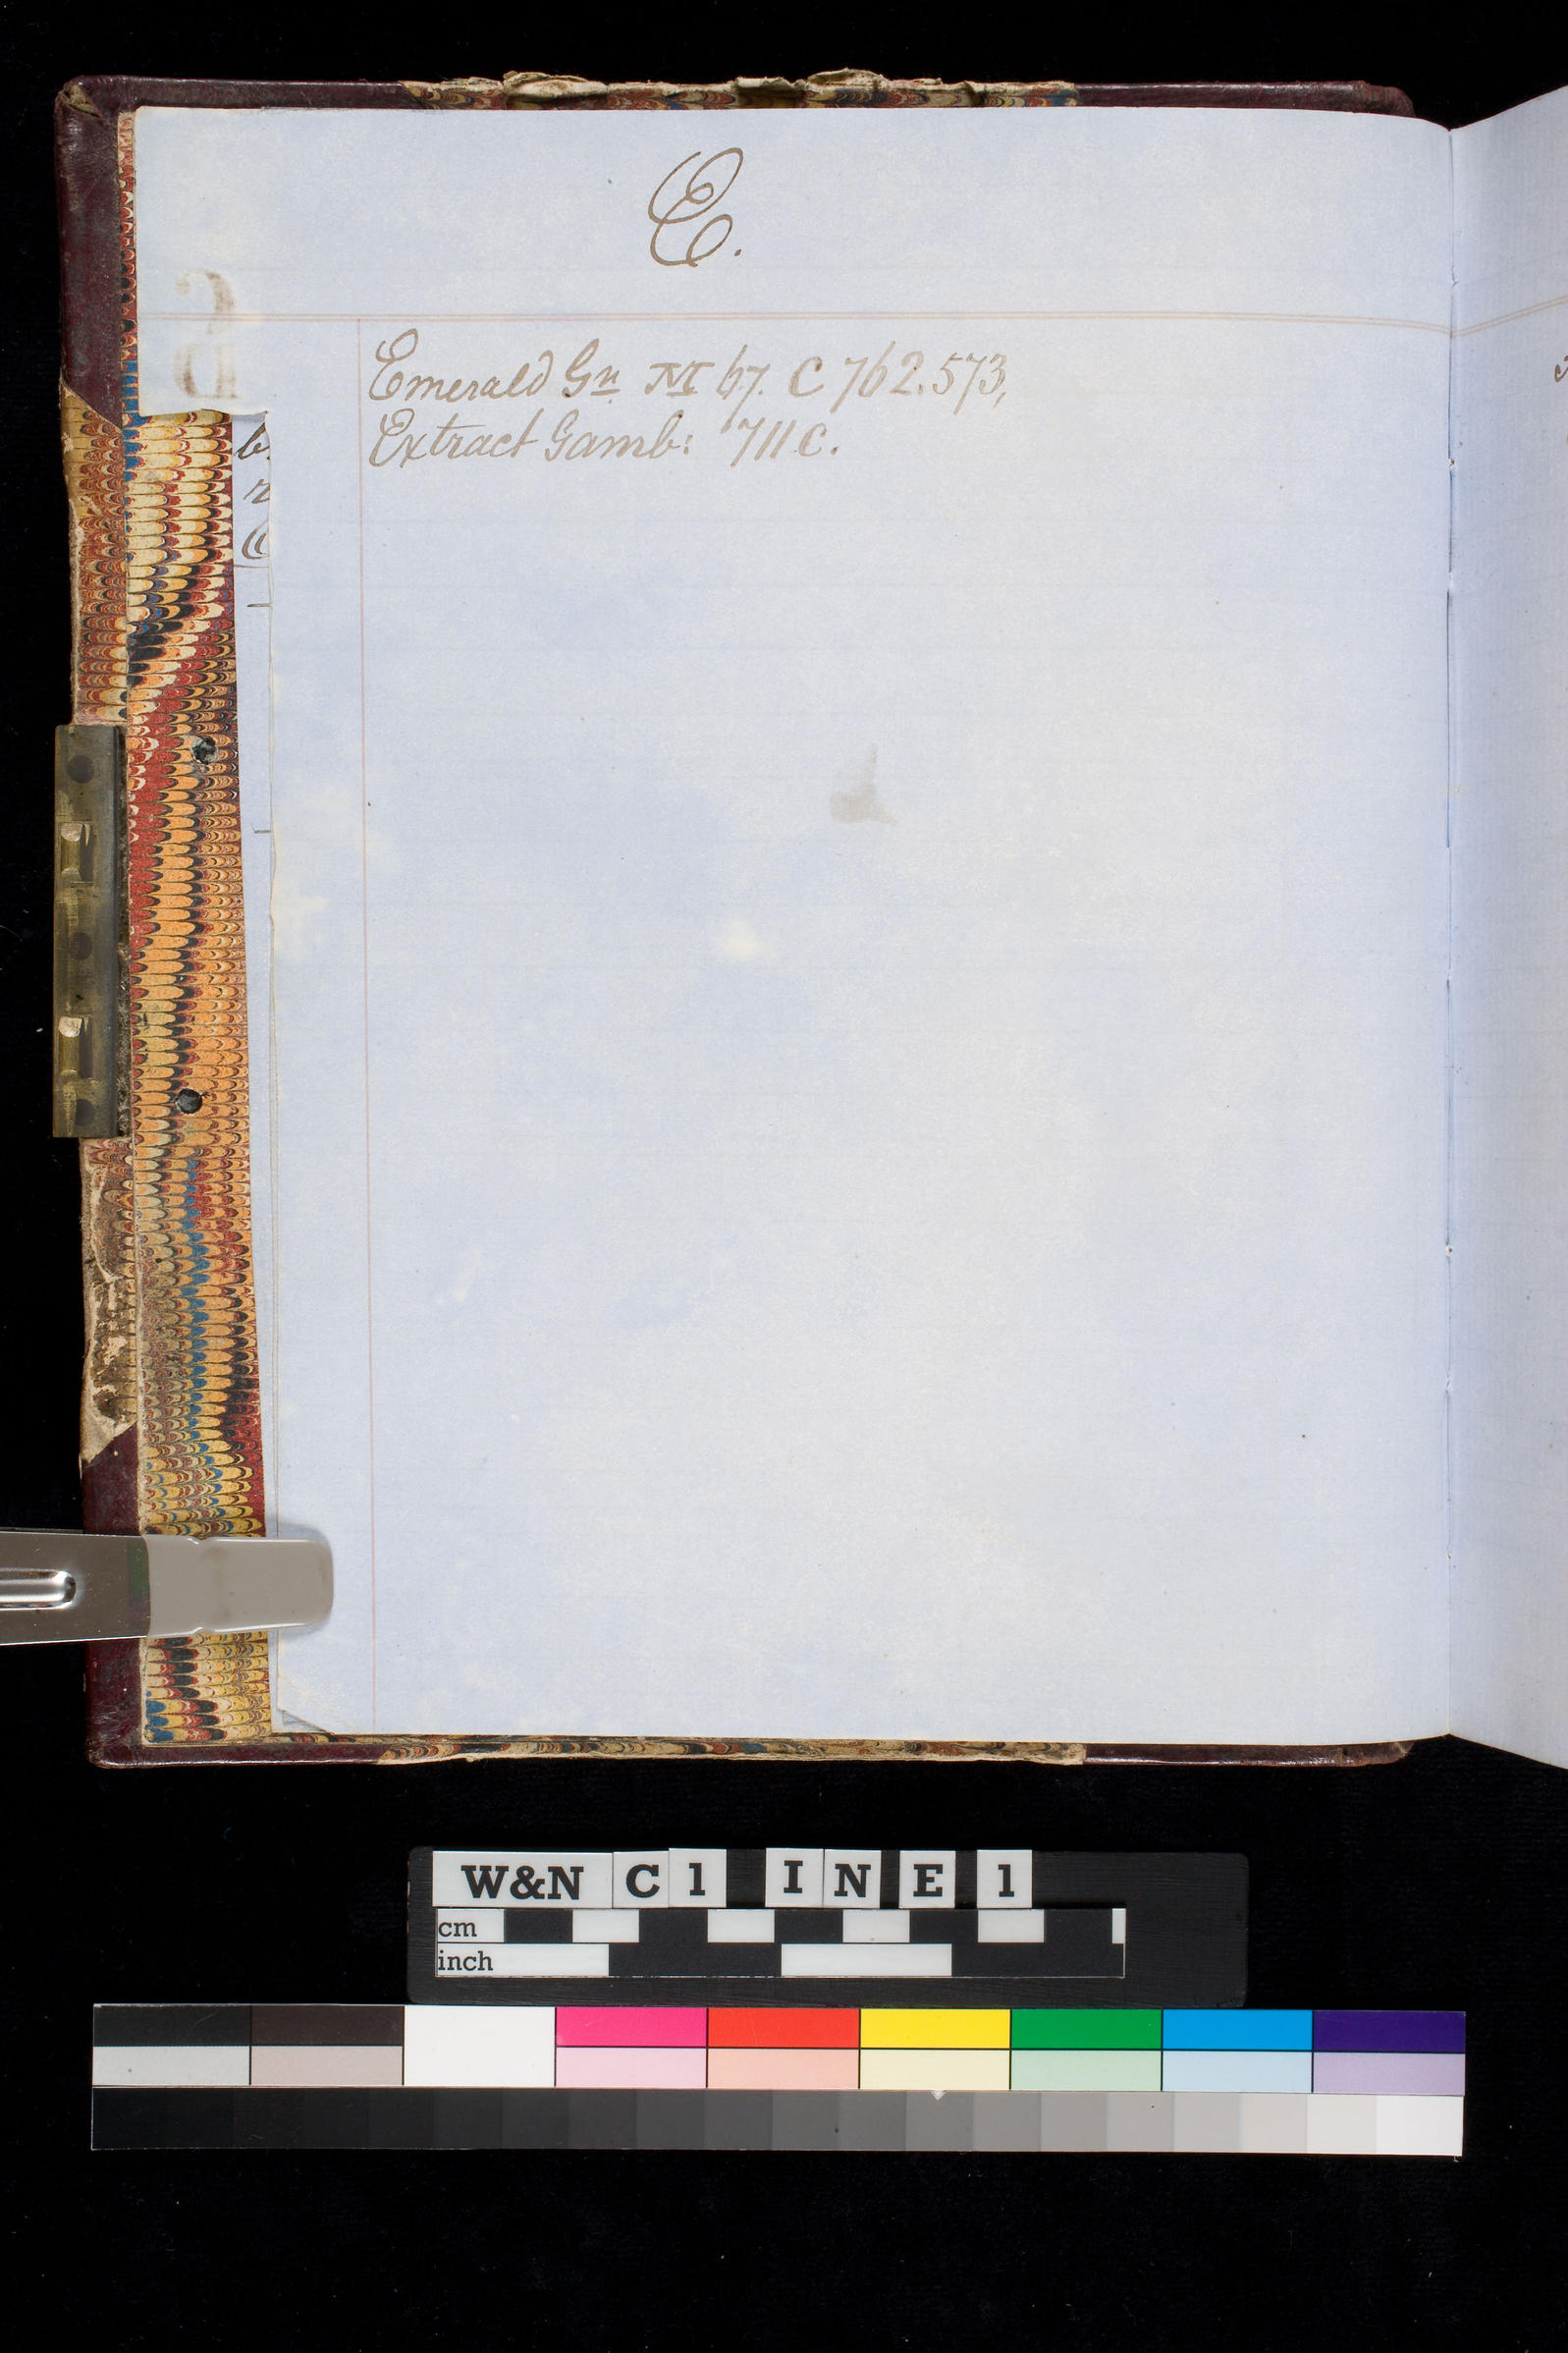 E.
Emerald Gn M 67. C 762.573,
Extract Gamb: 711 C.
W&N C1 INE1
cm
inch